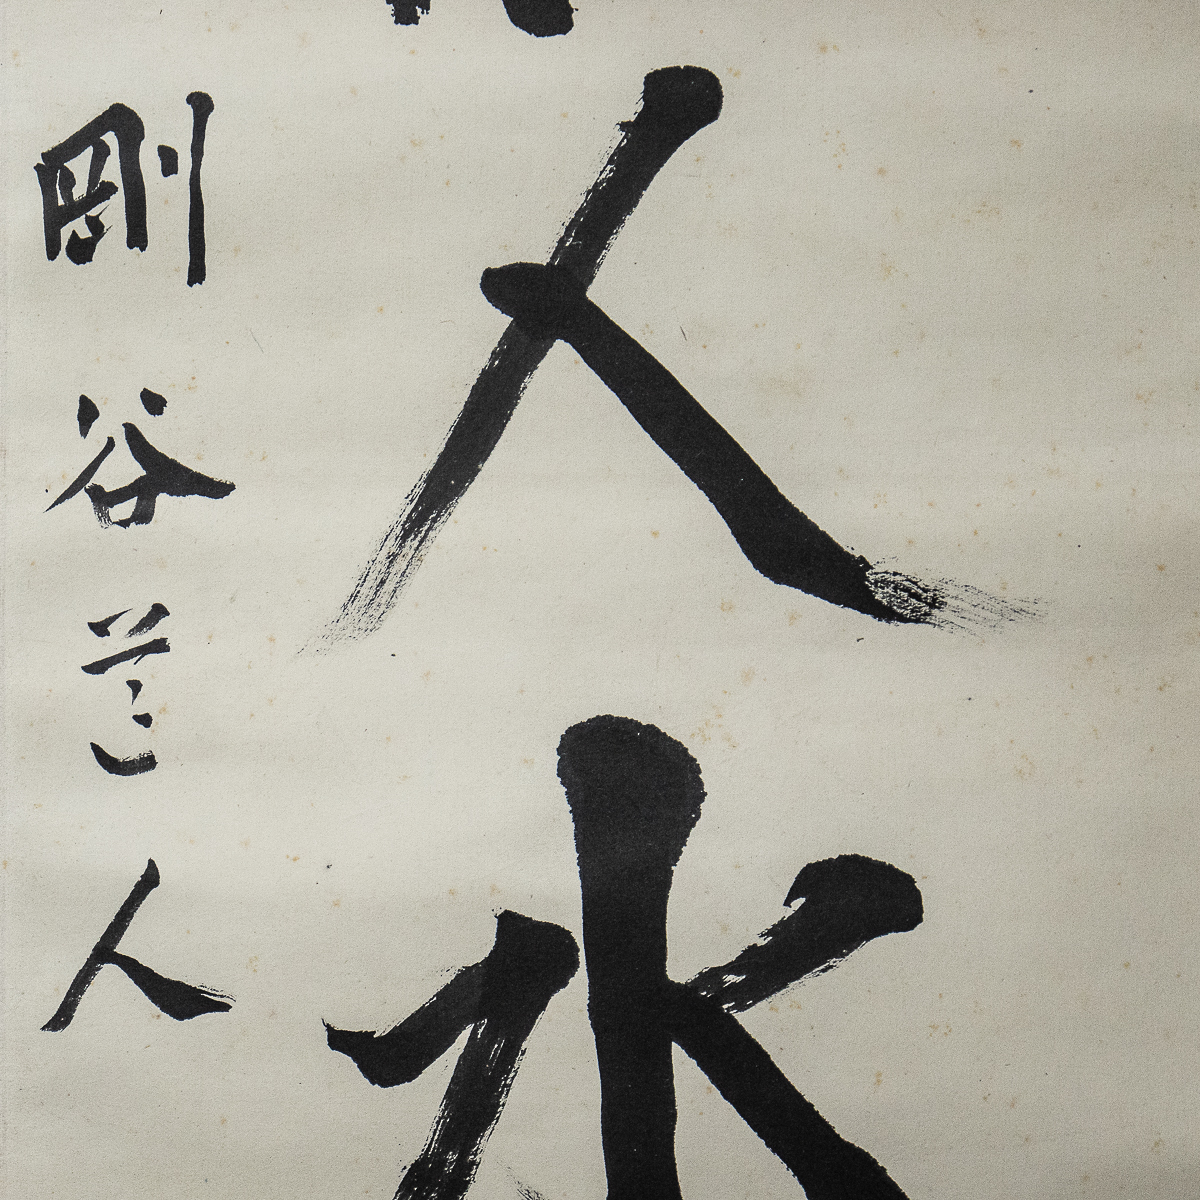 人水
剛谷道人